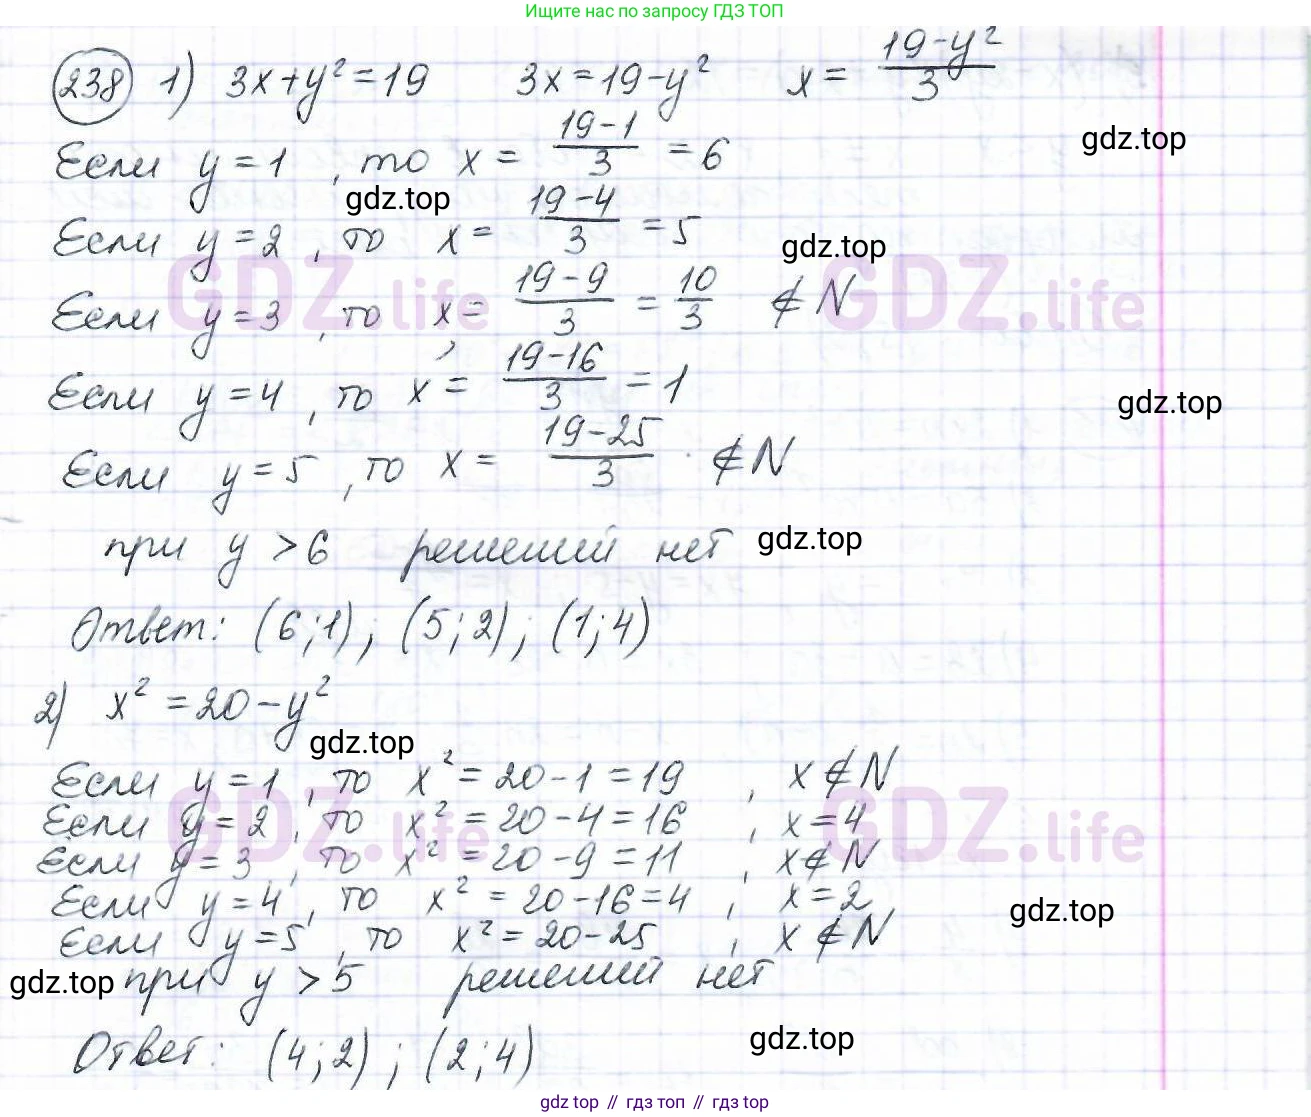 Ищите нас по запросу ГДЗ ТОП
238 1) 3x+y²=19 3x=19-y² x= (19-y²)/3
gdz.top
Если y=1, то x= (19-1)/3 =6
gdz.top
Если y=2, то x= (19-4)/3 =5
gdz.top
GDZ.life GDZ.life
Если y=3, то x= (19-9)/3 = 10/3 ∉ N
Если y=4, то x= (19-16)/3 =1
gdz.top
Если y=5, то x= (19-25)/3 ∉ N
при y >6 решений нет
gdz.top
Ответ: (6;1), (5;2); (1;4)
2) x² =20-y²
gdz.top
Если y=1, то x²=20-1=19, x∉N
GDZ.life GDZ.life
Если y=2, то x²=20-4=16, x=4
Если y=3, то x²=20-9=11, x∉N
Если y=4, то x²=20-16=4, x=2
gdz.top
Если y=5, то x²=20-25, x∉N
gdz.top при y >5 решений нет
Ответ: (4;2); (2;4)
gdz.top
gdz top // гдз топ // gdz top